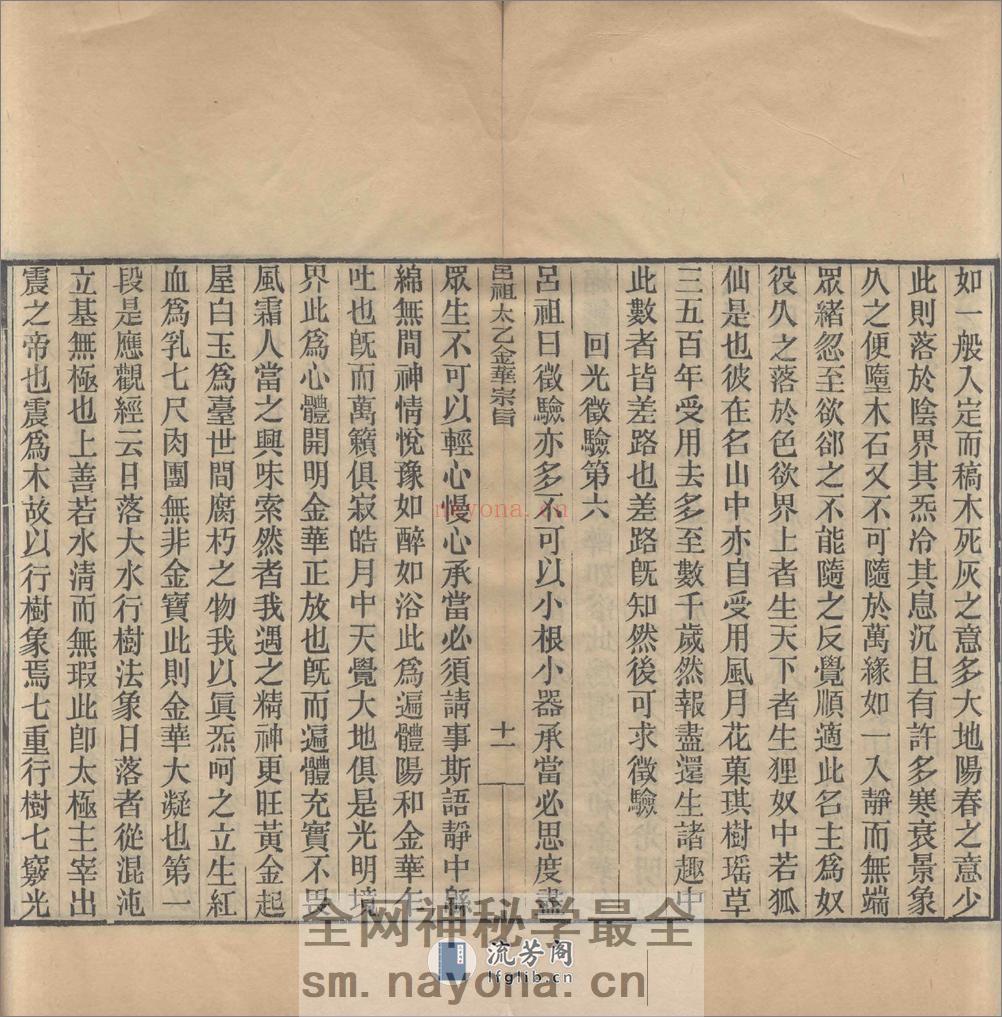 如一般入定而稿木死灰之意多大地陽春之意少
此則落於陰界其炁冷其息沉且有許多寒衰景象
久之便墮木石又不可隨於萬緣如一入靜而無端
眾緒忽至欲郤之不能隨之反覺順適此名主為奴
役久之落於色欲界上者生天下者生狸奴中若狐
仙是也彼在名山中亦自受用風月花菓琪樹瑶草
三五百年受用去多至數千歲然報盡還生諸趣中
此數者皆差路也差路旣知然後可求徵驗
回光徵驗第六
呂祖曰徵驗亦多不可以小根小器承當必思度盡
呂祖太乙金華宗旨
十一
眾生不可以輕心慢心承當必須請事斯語靜中緜
綿無間神情悅豫如醉如浴此為遍體陽和金華乍
吐也旣而萬籟俱寂皓月中天覺大地俱是光明境
界此為心體開明金華正放也旣而遍體充實不畏
風霜人當之興味索然者我遇之精神更旺黃金起
屋白玉為臺世間腐朽之物我以眞炁呵之立生紅
血為乳七尺肉團無非金寶此則金華大凝也第一
段是應觀經云日落大水行樹法象日落者從混沌
立基無極也上善若水清而無瑕此卽太極主宰出
震之帝也震為木故以行樹象焉七重行樹七竅光
nayona.cn
全网神秘学最全
流芳阁
lfglib.cn
sm.nayona.cn